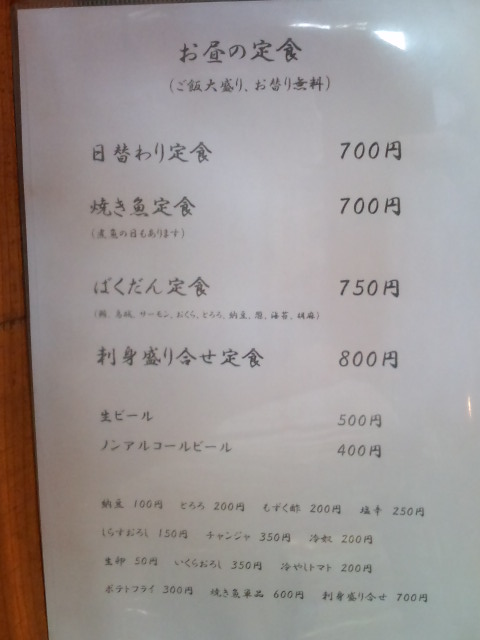 お昼の定食
(ご飯大盛り、お替り無料)
日替わり定食 700円
焼き魚定食 700円
(煮魚の日もあります)
ばくだん定食 750円
(鮪、烏賊、サーモン、おくら、とろろ、納豆、葱、海苔、胡麻)
刺身盛り合せ定食 800円
生ビール 500円
ノンアルコールビール 400円
納豆 100円 とろろ 200円 もずく酢 200円 塩辛 250円
しらすおろし 150円 チャンジャ 350円 冷奴 200円
生卵 50円 いくらおろし 350円 冷やしトマト 200円
ポテトフライ 300円 焼き魚単品 600円 刺身盛り合せ 700円